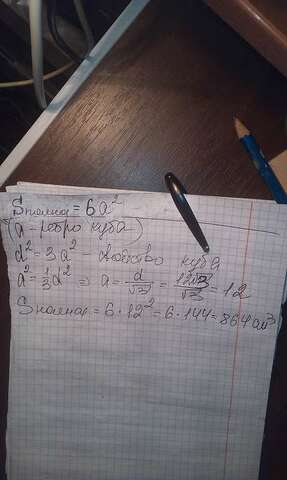 Sполная = 6a²
(a - ребро куба)
d² = 3a² - свойство куба
a² = 1/3 d² ⇒ a = d/√3 = 12√3/√3 = 12
Sполная = 6 · 12² = 6 · 144 = 864 см³